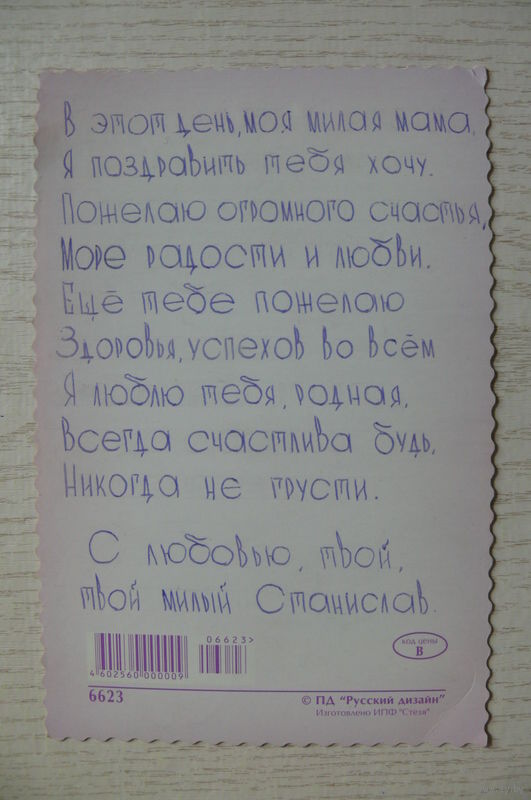 В этот день, моя милая мама,
Я поздравить тебя хочу.
Пожелаю огромного счастья,
Море радости и любви.
Ещё тебе пожелаю
Здоровья, успехов во всём
Я люблю тебя, родная,
Всегда счастлива будь,
Никогда не грусти.
С любовью, твой,
твой милый Станислав.
06623>
4 602560 000009
код цены
В
6623
© ПД "Русский дизайн"
Изготовлено ИПФ "Стезя"